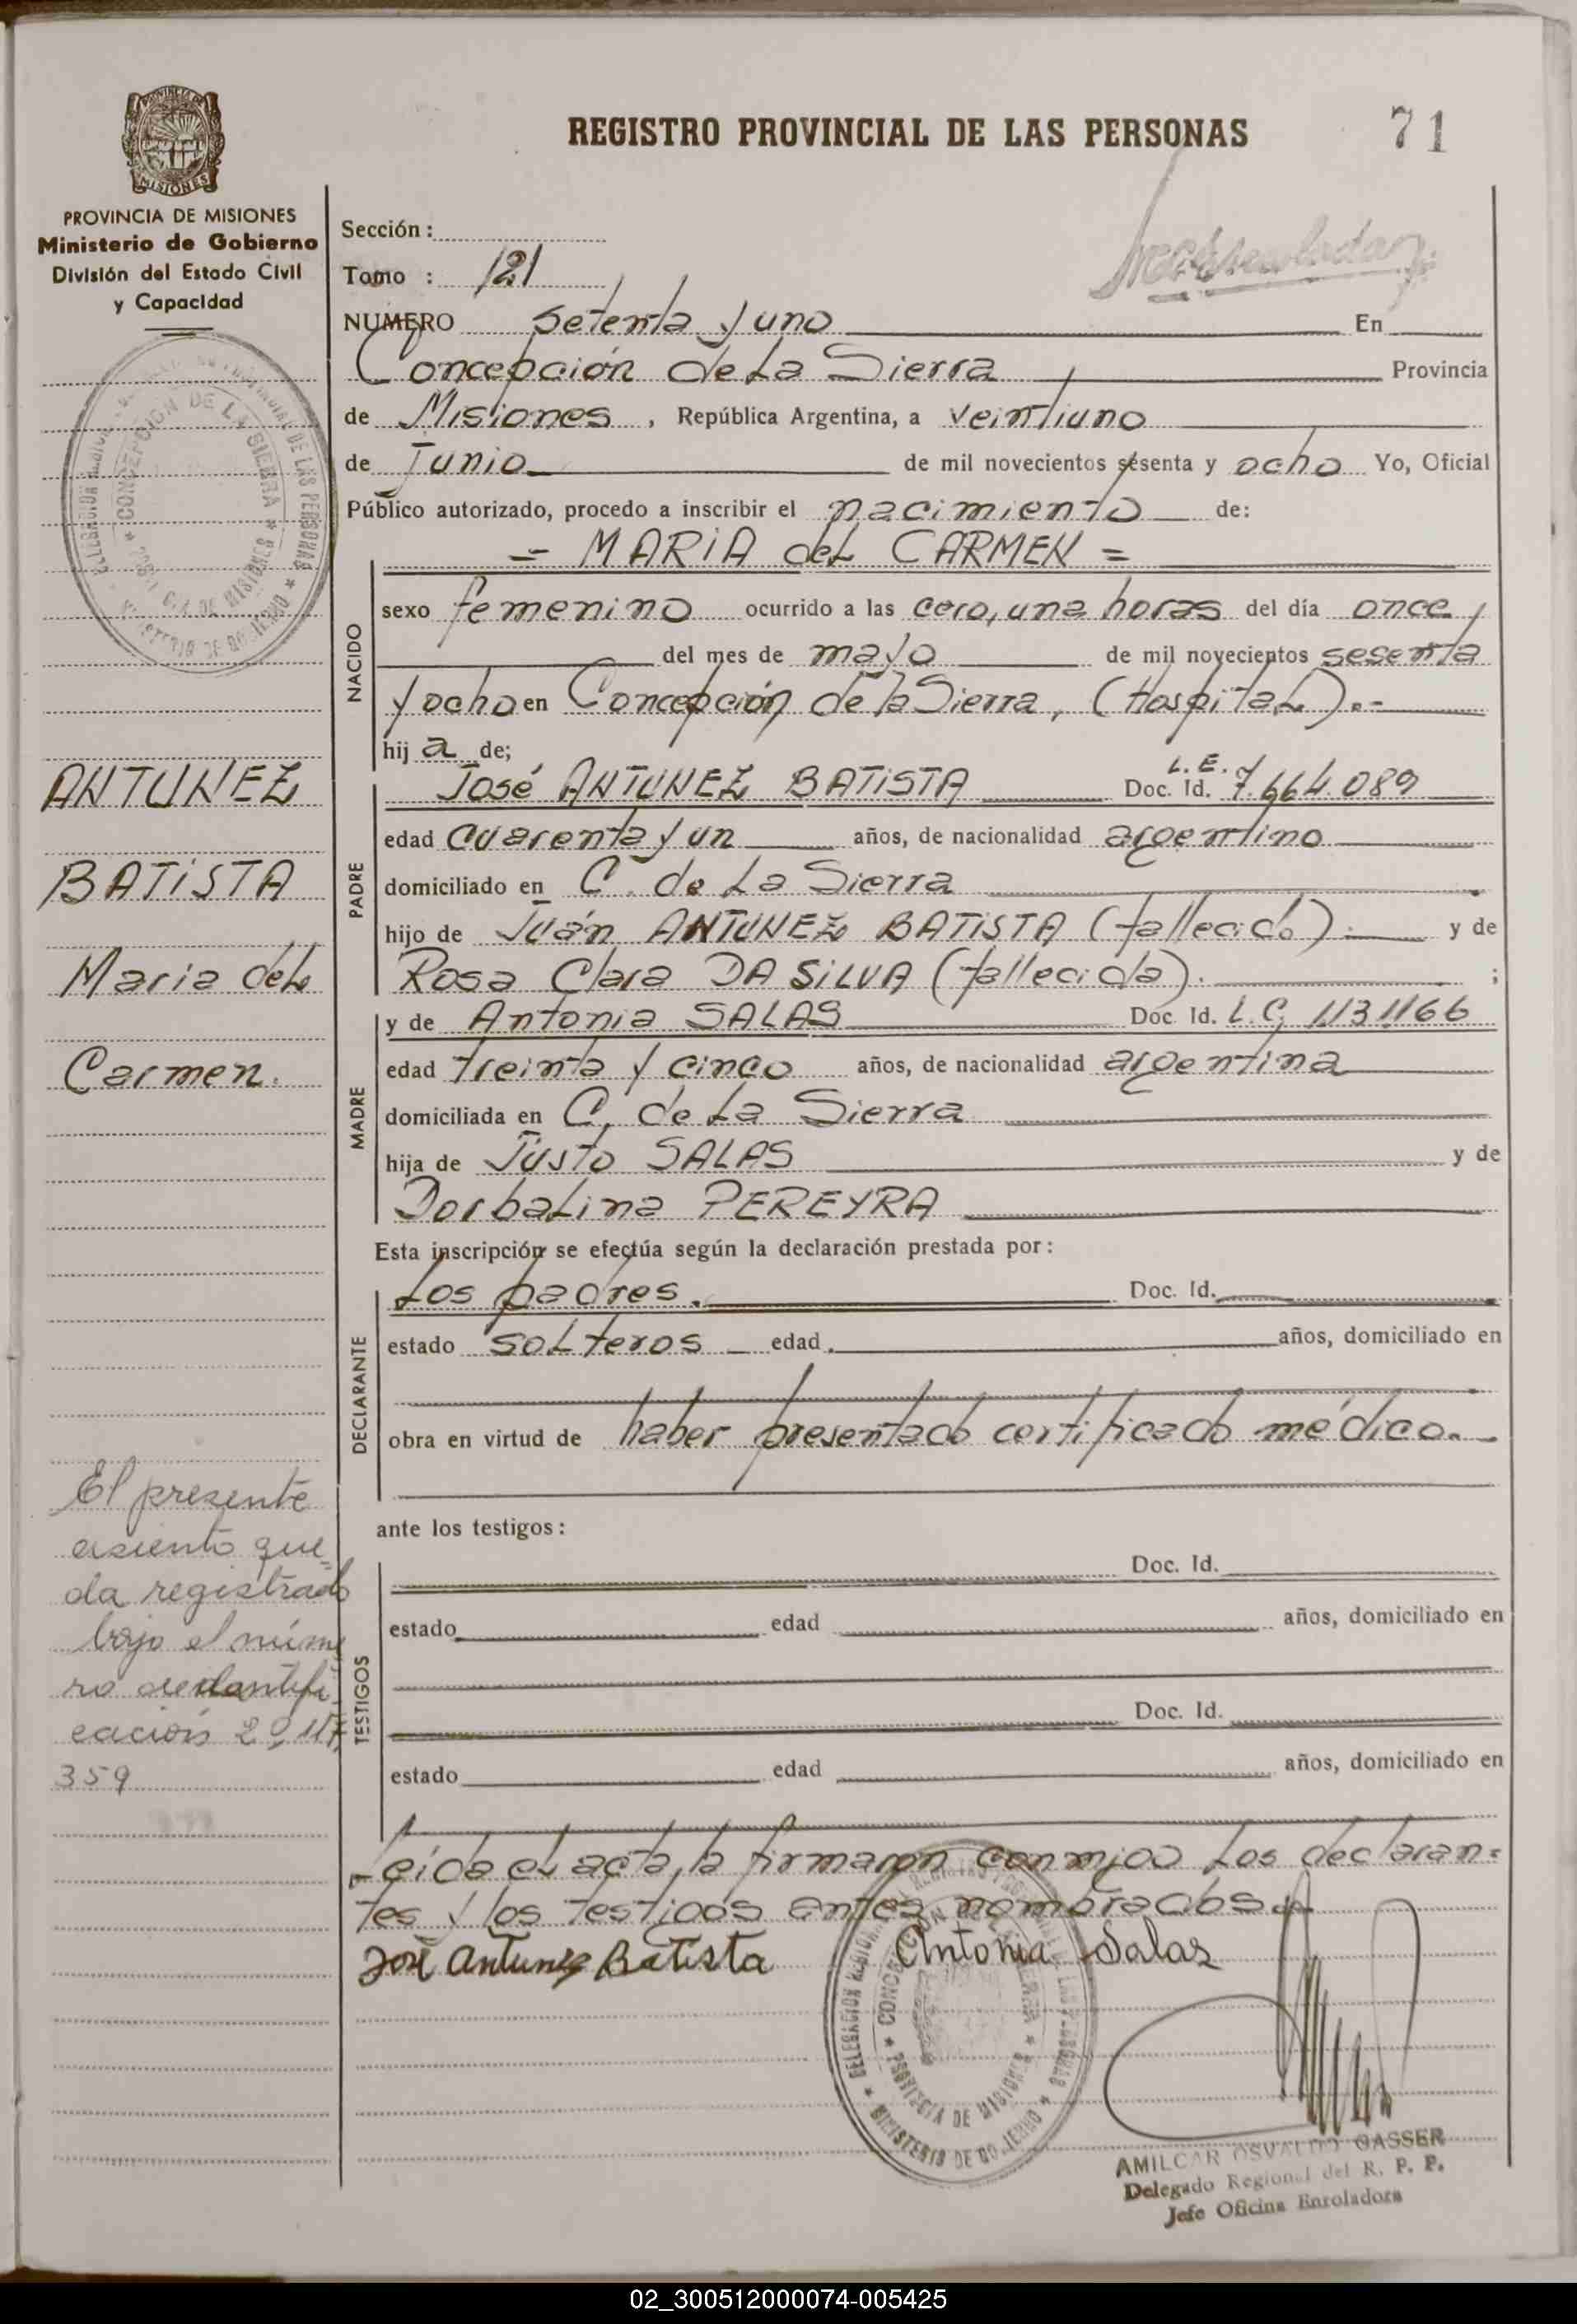 REGISTRO PROVINCIAL DE LAS PERSONAS
71
PROVINCIA DE MISIONES
Ministerio de Gobierno
División del Estado Civil
y Capacidad
Sección:
Tomo : 121
NUMERO setenta y uno En
Concepción de La Sierra Provincia
de Misiones, República Argentina, a veintiuno
de Junio de mil novecientos sesenta y ocho Yo, Oficial
Público autorizado, procedo a inscribir el nacimiento de:
= MARIA del CARMEN =
NACIDO
sexo femenino ocurrido a las cero, una horas del día once
del mes de mayo de mil novecientos sesenta
y ocho en Concepción de la Sierra, (Hospital).-
hij a de;
PADRE
José ANTUNEZ BATISTA Doc. Id. L.E. 7.664.089
edad cuarenta y un años, de nacionalidad argentino
domiciliado en C. de La Sierra
hijo de Juán ANTUNEZ BATISTA (fallecido). y de
Rosa Clara DA SILVA (fallecida). ;
MADRE
y de Antonia SALAS Doc. Id. L.C. 1131166
edad treinta y cinco años, de nacionalidad argentina
domiciliada en C. de La Sierra
hija de Justo SALAS y de
Dorbalina PEREYRA
Esta inscripción se efectúa según la declaración prestada por:
DECLARANTE
Los padres. Doc. Id.
estado solteros edad años, domiciliado en
obra en virtud de haber presentado certificado médico.
ante los testigos:
TESTIGOS
Doc. Id.
estado edad años, domiciliado en
Doc. Id.
estado edad años, domiciliado en
Leída el acta, la firmaron conmigo Los declaran=
tes y los testigos antes nombrados.
José Antunez Batista Antonia Salas
AMILCAR OSVALDO GASSER
Delegado Regional del R. P. P.
Jefe Oficina Enroladora
ANTUNEZ
BATISTA
Maria del
Carmen.
El presente
asiento que
da registrado
bajo el núme
ro de identifi
cación 20.117.
359
CONCEPCION DE LA SIERRA
PROVINCIA DE MISIONES
MINISTERIO DE GOBIERNO
02_300512000074-005425